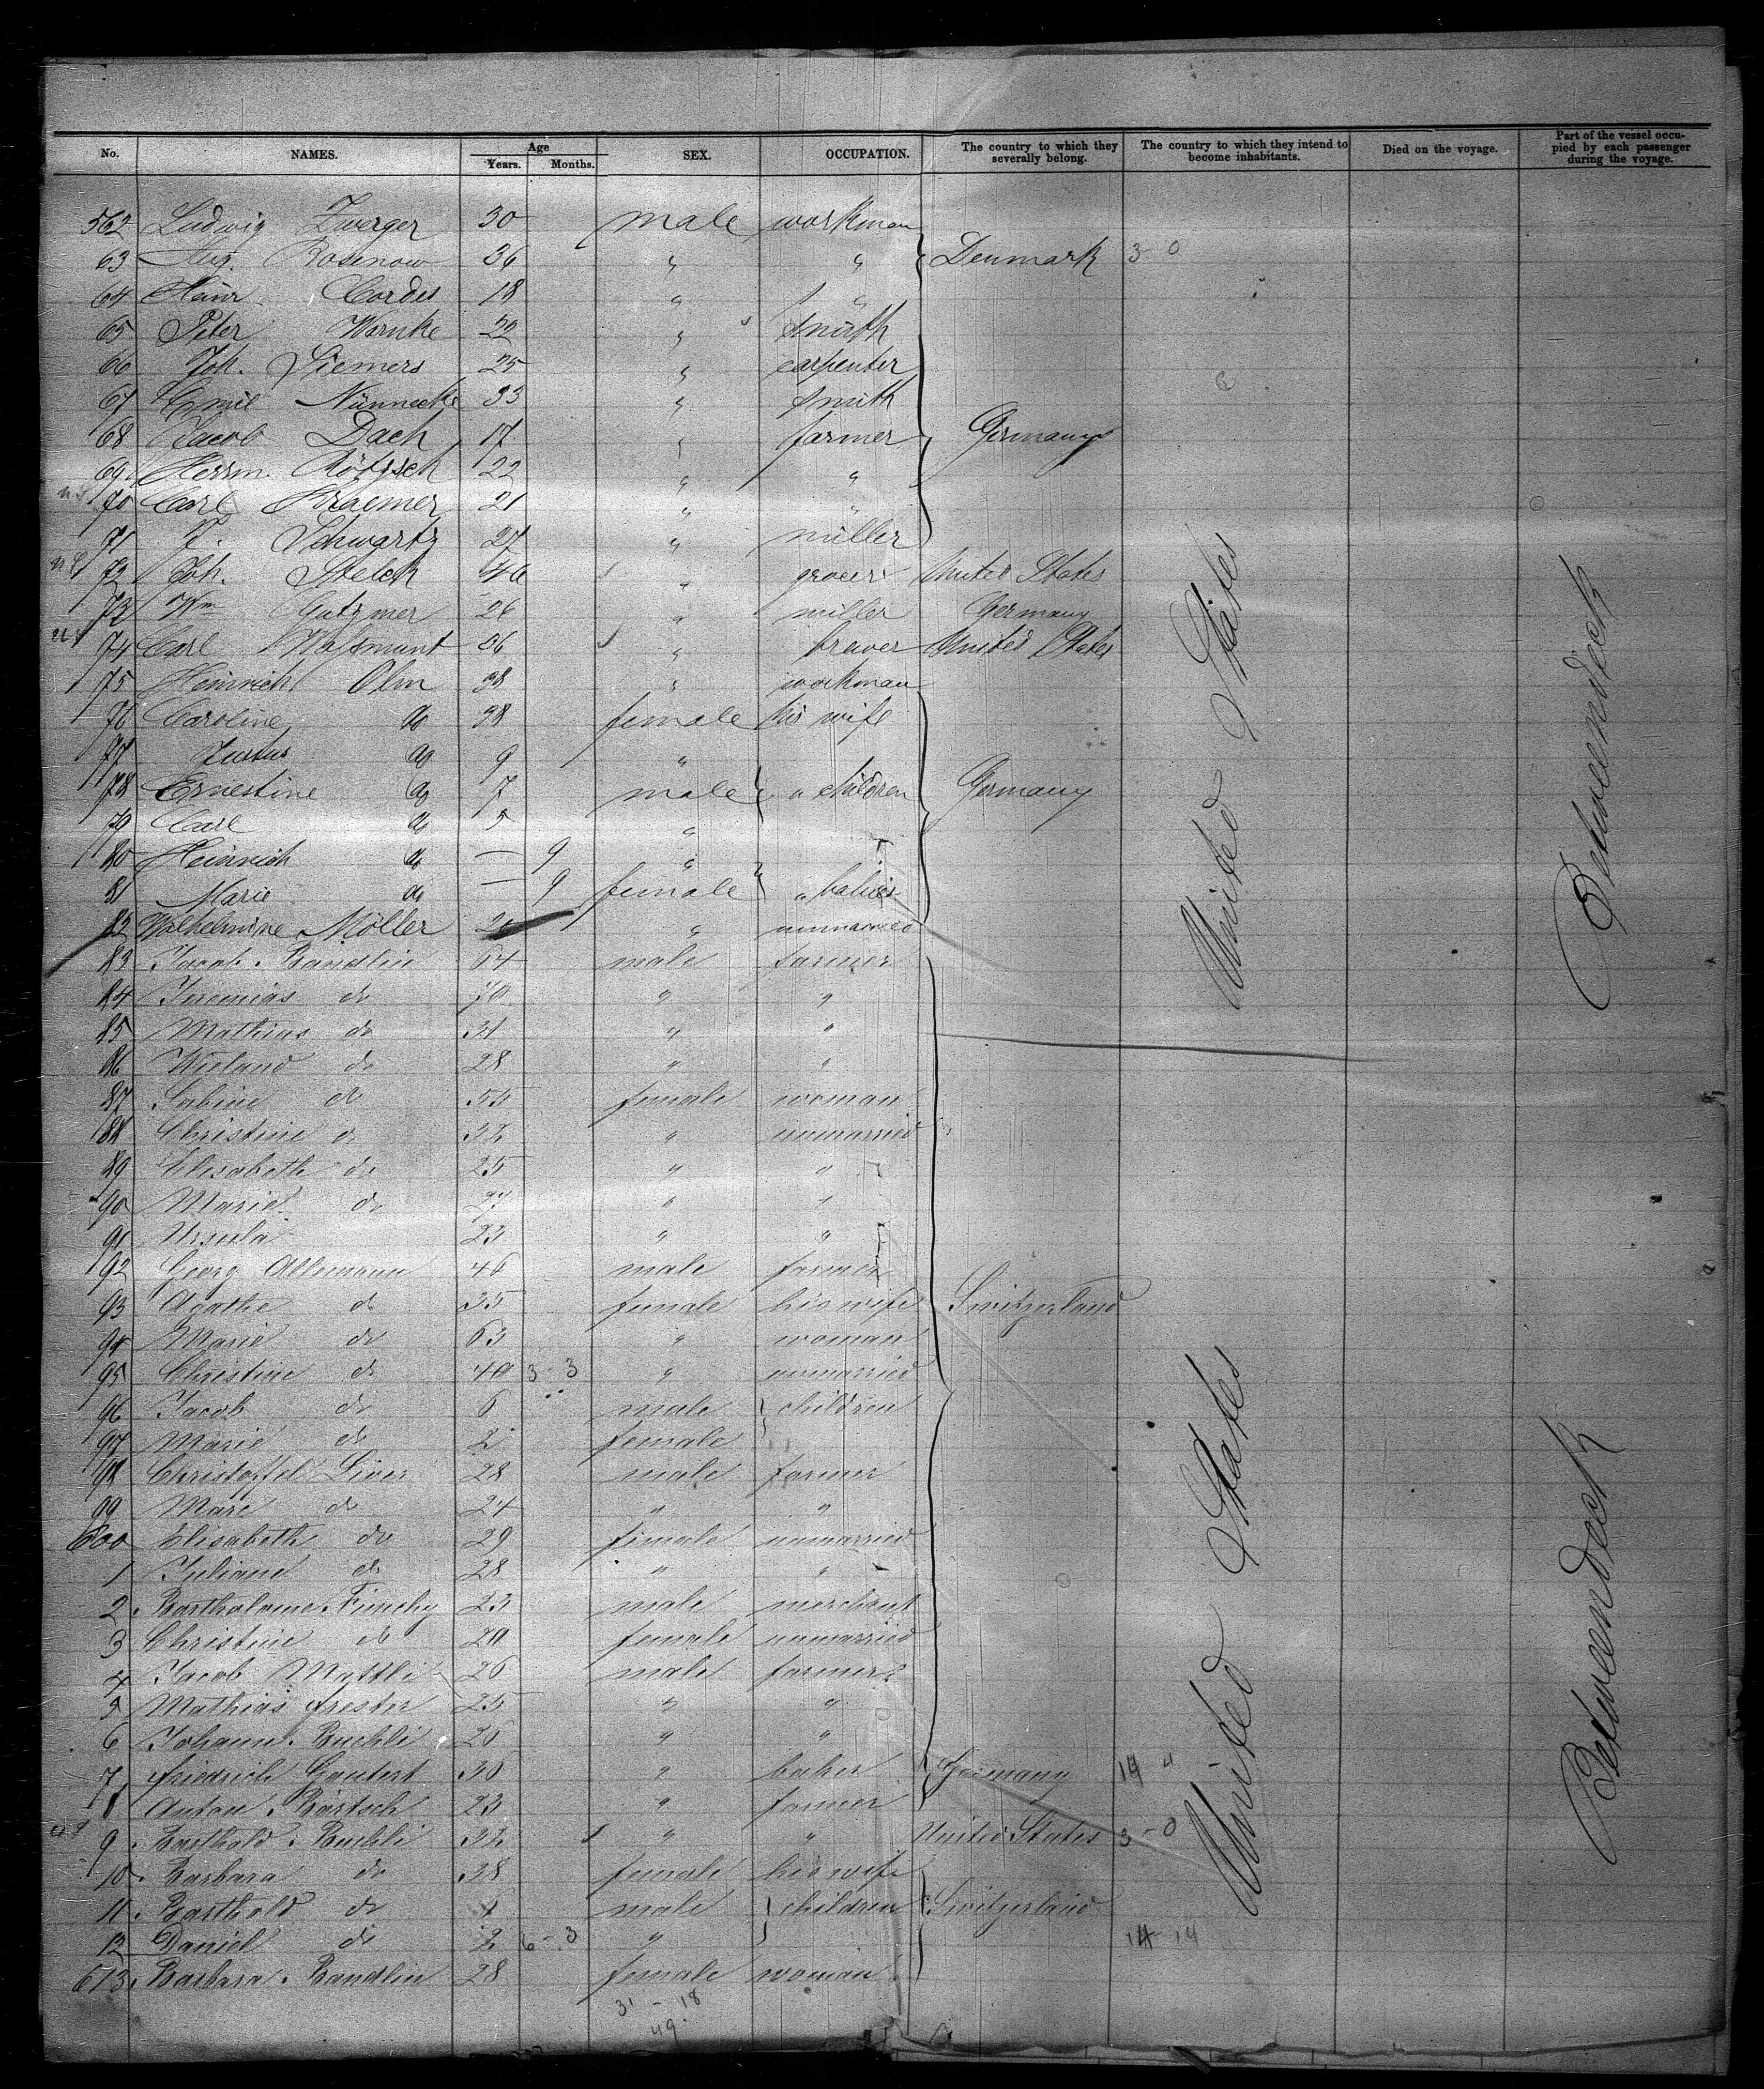 No. NAMES. Age Years. Months. SEX. OCCUPATION. The country to which they severally belong. The country to which they intend to become inhabitants. Died on the voyage. Part of the vessel occupied by each passenger during the voyage.
562 Ludwig Zwerger 30 male workman
63 Aug. Rosenow 36 " " Denmark 3-0
64 Heinr. Cordes 18 " "
65 Peter Warnke 22 " smith
66 Joh. Siemers 25 " carpenter
67 Emil Nünnecke 33 " smith
68 Jacob Dach 17 " farmer Germany
69 Herrm. 22 " "
70 Carl Kraemer 21 " "
71 F. Schwartz 27 " miller
72 Joh. Stelck 46 " grocer United States
73 Wm Gutzmer 26 " miller Germany
74 Carl 36 " brewer United States
75 Heinrich Olm 38 " workman
76 Caroline do 38 female his wife
77 Justus do 9 "
78 Ernestine do 7 male " children Germany
79 Carl do 5 "
80 Heinrich do — 9 "
81 Marie do — 9 female " babies
82 Wilhelmine Möller 20 " unmarried
83 Jacob Bandlin 64 male farmer
84 Jeremias do 70 " "
85 Mathias do 31 " "
86 Wieland do 28 " "
87 Sabine do 55 female woman
88 Christine do 32 " unmarried
89 Elisabeth do 25 " "
90 Marie do "
91 Ursula 23 " "
92 Georg Allemann 46 male farmer
93 Agathe do 35 female his wife Switzerland
94 Marie do 63 " woman
95 Christine do 40 3-3 " unmarried
96 Jacob do 6 male children
97 Marie do 2 female
98 Christoffel Liver 28 male farmer
99 Marc do 24 " "
600 Elisabeth do 29 female unmarried
1 Juliane do 28 " "
2 Bartholome 23 male merchant
3 Christine do 20 female unmarried
4 Jacob Mattli 26 male farmer
5 Mathias 25 " "
6 Johann Buchli 26 " "
7 Friedrich Gautert 36 " baker Germany 14 4
8 Anton Bärtsch 23 " farmer
9 Barthold Buchli 32 " " United States 3-0
10 Barbara do 38 female his wife
11 Barthold do male children Switzerland
12 Daniel do 2 6-3 " 14-14
613 Barbara Bandlin 28 female woman
31-18
49
United States
United States
Betweendeck
Betweendeck